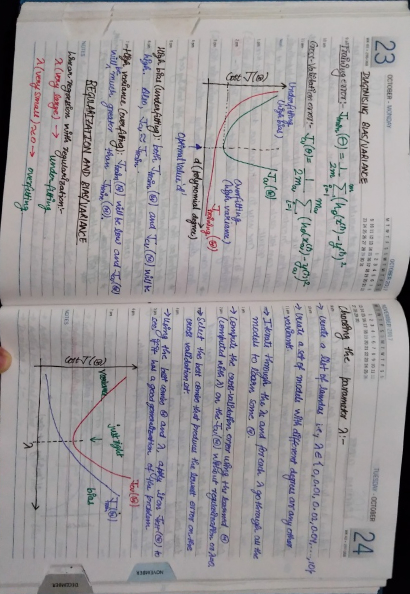 23
OCTOBER - MONDAY
DIAGNOSING BIAS/VARIANCE
Training error:- J_train(Θ) = 1/2m Σ_{i=1}^{m} (h_Θ(x^(i)) - y^(i))²
Cross-Validation error:- J_cv(Θ) = 1/2m_cv Σ_{i=1}^{m_cv} (h_Θ(x_cv^(i)) - y_cv^(i))²
Underfitting
(high bias)
J_cv(Θ)
Overfitting
(high variance)
J_training(Θ)
Cost J(Θ)
d (polynomial degree)
optimal value 'd'
High bias (underfitting): both J_train(Θ) and J_cv(Θ) will be
high. Also, J_cv ≈ J_train.
→ High variance (overfitting): J_train(Θ) will be low and J_cv(Θ)
will be much greater than J_train(Θ).
REGULARIZATION AND BIAS/VARIANCE
Linear regression with regularization:-
λ (very large) → underfitting
λ (very small) ≈ 0 → overfitting
NOTES
TUESDAY - OCTOBER
24
Choosing the parameter λ:-
→ Create a list of lambdas i.e., λ ∈ {0, 0.01, 0.02, 0.04, ..., 10}
→ Create a set of models with different degrees or any other
variants.
→ Iterate through the λs and for each λ go through all the
models to learn some Θ.
→ Compute the cross validation error using the learned Θ
(computed with λ) on the J_cv(Θ) without regularization or λ=0.
→ Select the best combo that produces the lowest error on the
cross validation set.
→ Using the best combo Θ and λ, apply it on J_test(Θ) to
see if it has a good generalization of the problem.
Cost J(Θ)
Variance
just right
bias
J_cv(Θ)
J_train(Θ)
λ
NOTES
NOVEMBER
DECEMBER